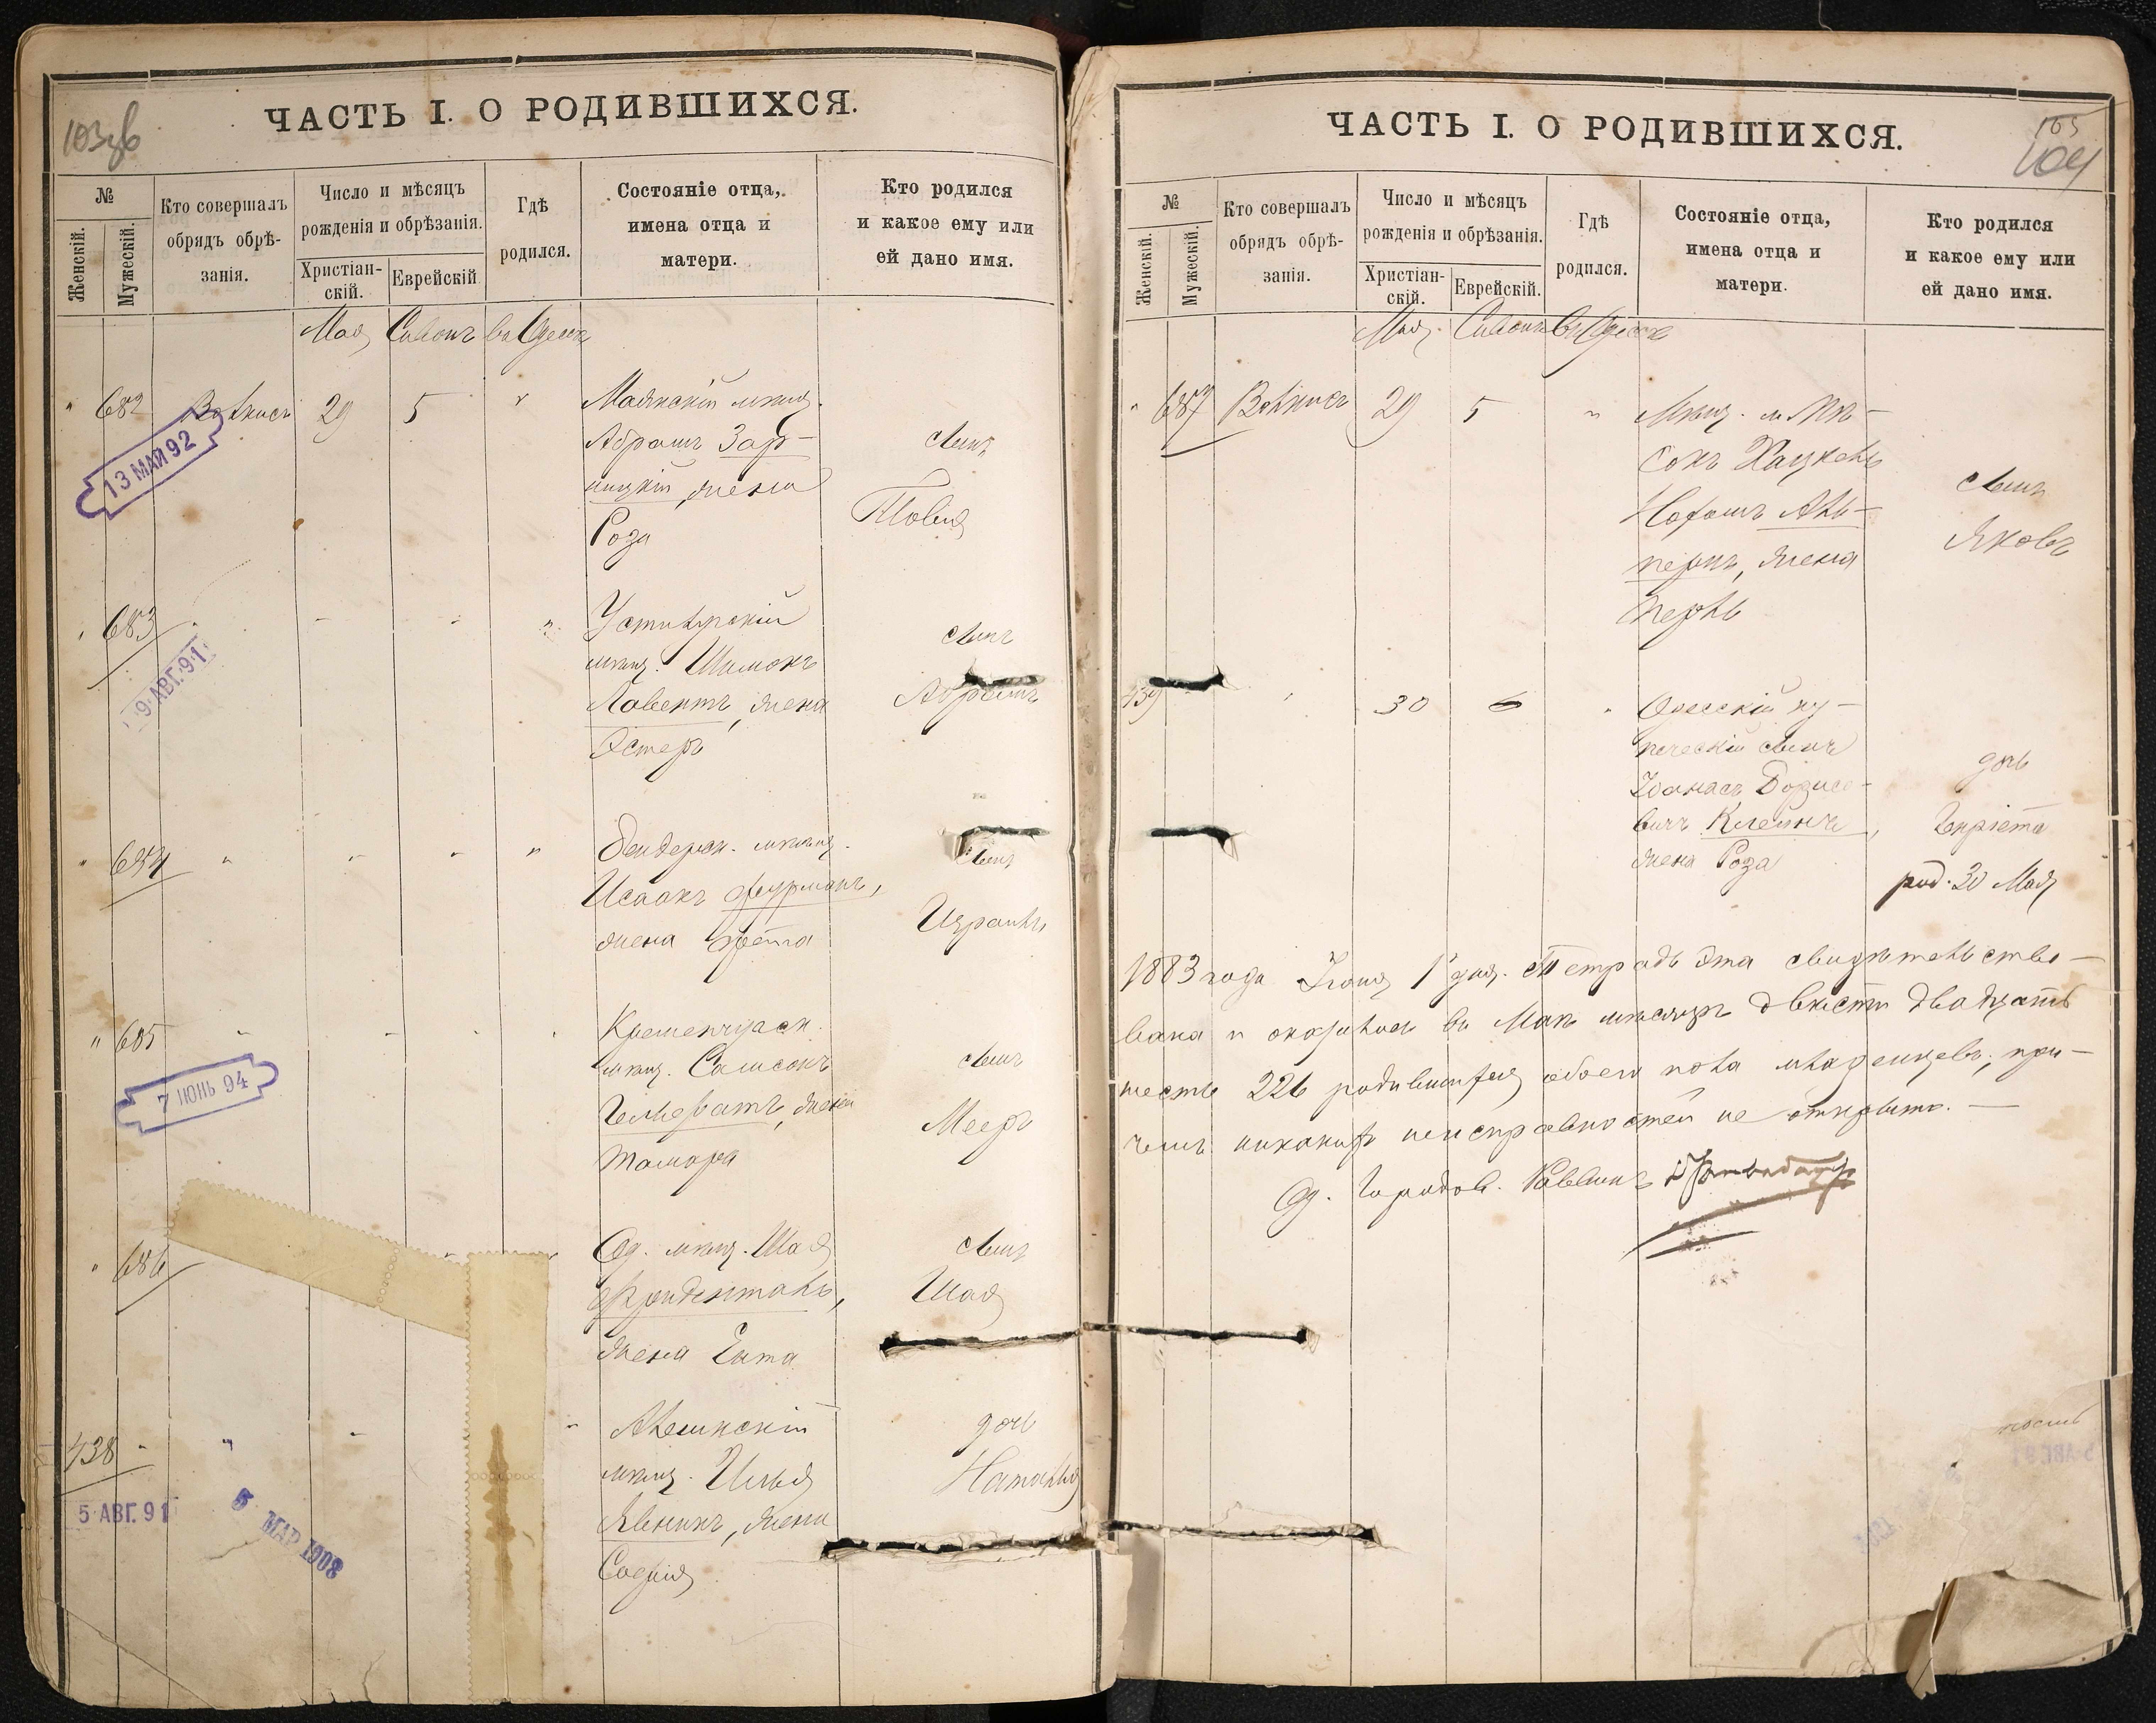 103об
ЧАСТЬ I. О РОДИВШИХСЯ.
№
Женскій.
Мужескій.
Кто совершалъ
обрядъ обрѣ-
занія.
Число и мѣсяцъ
рожденія и обрѣзанія.
Христіан-
скій.
Еврейскій
Гдѣ
родился.
Состояніе отца,
имена отца и
матери.
Кто родился
и какое ему или
ей дано имя.
Мая Сивонъ въ Одессѣ
" 682 29 5 "
Маякскій мѣщ.
Абрамъ Зар-
ницкій, жена
Роза
сынъ
Товія
13 МАЙ 92
683
мѣщ. Шимонъ
Лавентъ, жена
Эстеръ
сынъ
Абрамъ
9 АВГ. 91
" 684 " " " "
Бендерск. мѣщ.
Исаакъ Фурманъ,
жена
сынъ
Израиль
" 685
Кременчугск.
мѣщ. Самсонъ
жена
Тамара
сынъ
Мееръ
7 ІЮНЬ 94
" 686
Од. мѣщ. Шая
Фрейденталь,
жена Ента
сынъ
Шая
438
мѣщ. Илья
Явенинъ, жена
Софія
дочь
Наталія
5 АВГ. 91
5 МАР 1908
105
104
ЧАСТЬ I. О РОДИВШИХСЯ.
№
Женскій.
Мужескій.
Кто совершалъ
обрядъ обрѣ-
занія.
Число и мѣсяцъ
рожденія и обрѣзанія.
Христіан-
скій.
Еврейскій.
Гдѣ
родился.
Состояніе отца,
имена отца и
матери.
Кто родился
и какое ему или
ей дано имя.
Мая Сивонъ въ Одессѣ
" 687 29 5 "
Хацкель
Аль-
перъ, жена
Перль
сынъ
Яковъ
439 30 6 "
Одесскій ку-
печескій сынъ
Борисо-
вичъ Клейнъ,
жена Роза
дочь
Генріета
род. 30 Мая
1883 года Іюня 1 дня. Тетрадь эта свидѣтельство-
вана и оказалось въ Маѣ мѣсяцѣ двѣсти двадцать
шесть 226 родившихся обоего пола младенцевъ, при-
чемъ никакихъ неисправностей не открыто. —
Од. Городов. Раввинъ